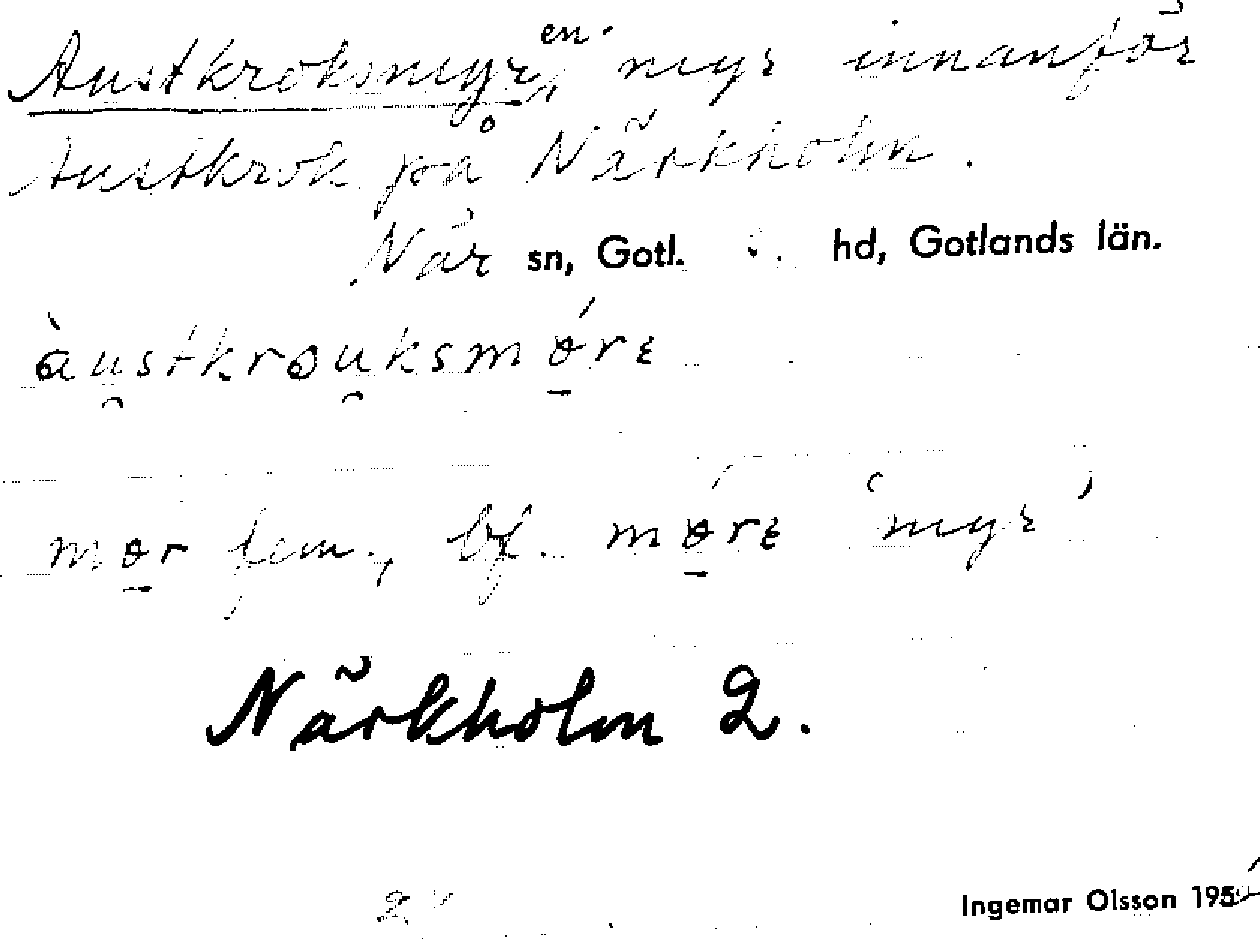 Austkroksmyren, myr innanför
Austkrok på Närkholm.
När sn, Gotl. S. hd, Gotlands län.
àu̯stkrɔu̯ksmɵ̠́rɛ
mɵ̠r fem., bf. mɵ̠́rɛ 'myr'
Närkholm 2.
Ingemar Olsson 195